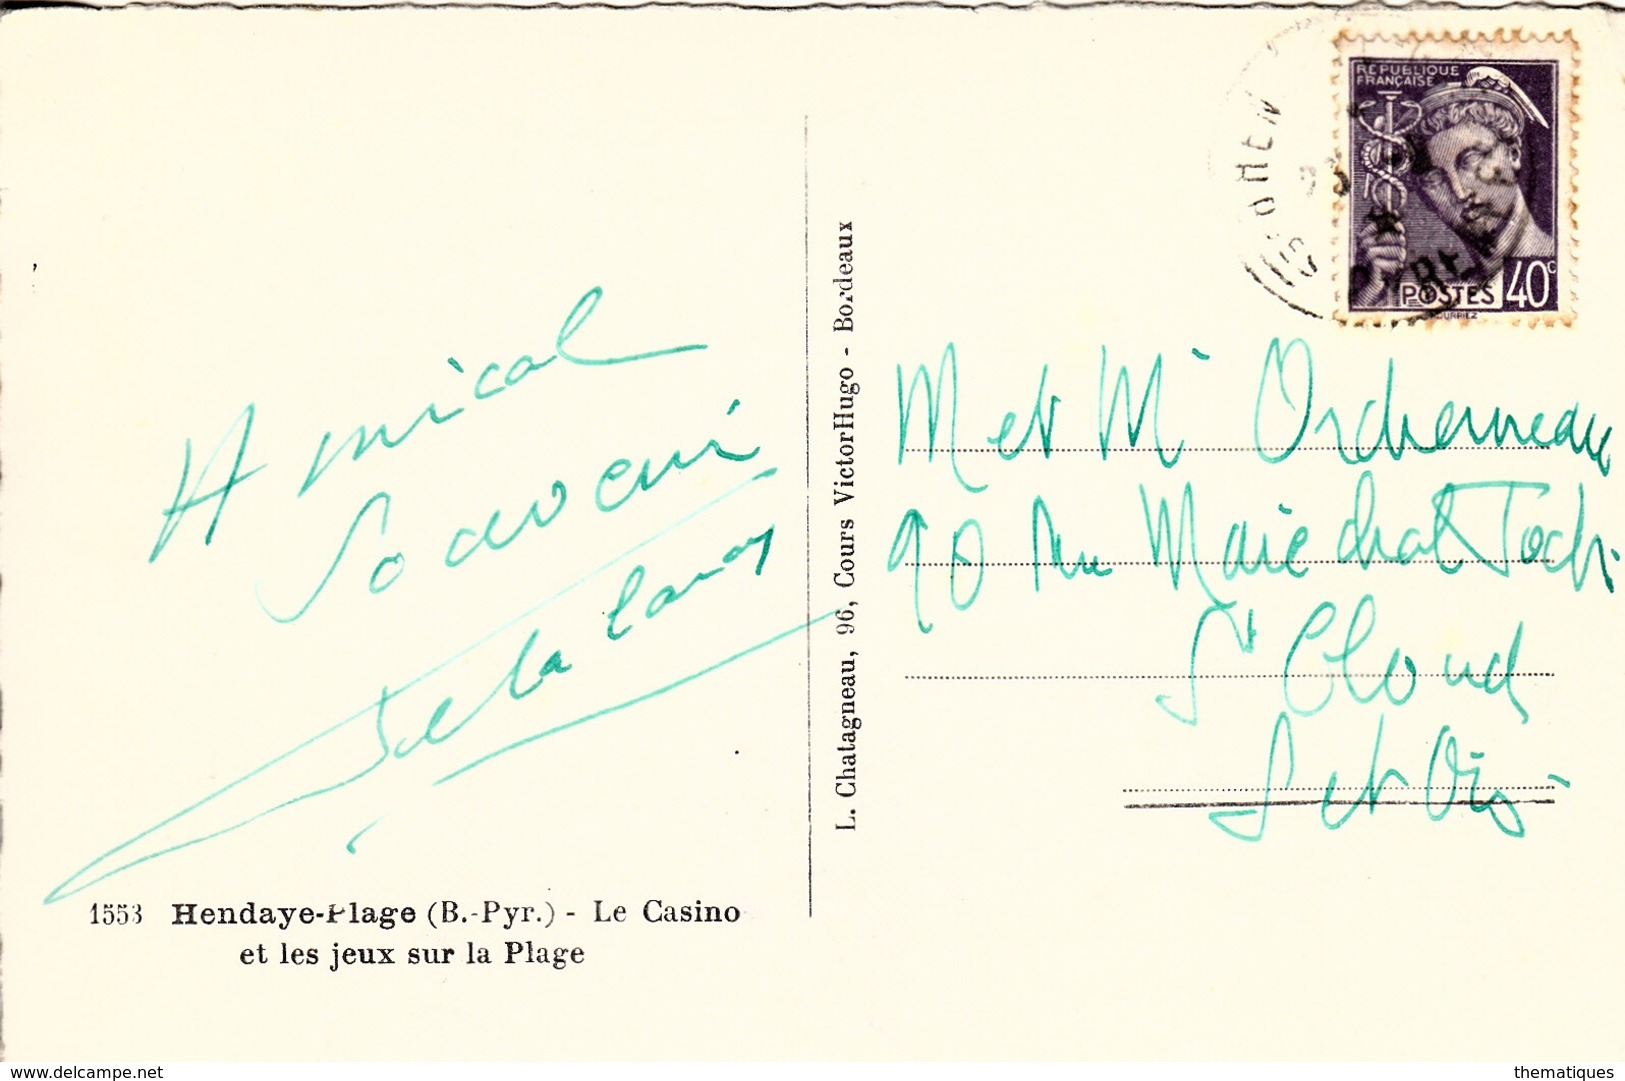 RÉPUBLIQUE
FRANÇAISE
POSTES 40c
Amical
Souvenir
M et Me
90 rue Maréchal Foch
St Cloud
Set Oise
L. Chatagneau, 96, Cours Victor Hugo - Bordeaux
1553 Hendaye-Plage (B.-Pyr.) - Le Casino
et les jeux sur la Plage
delcampe.net
thematiques